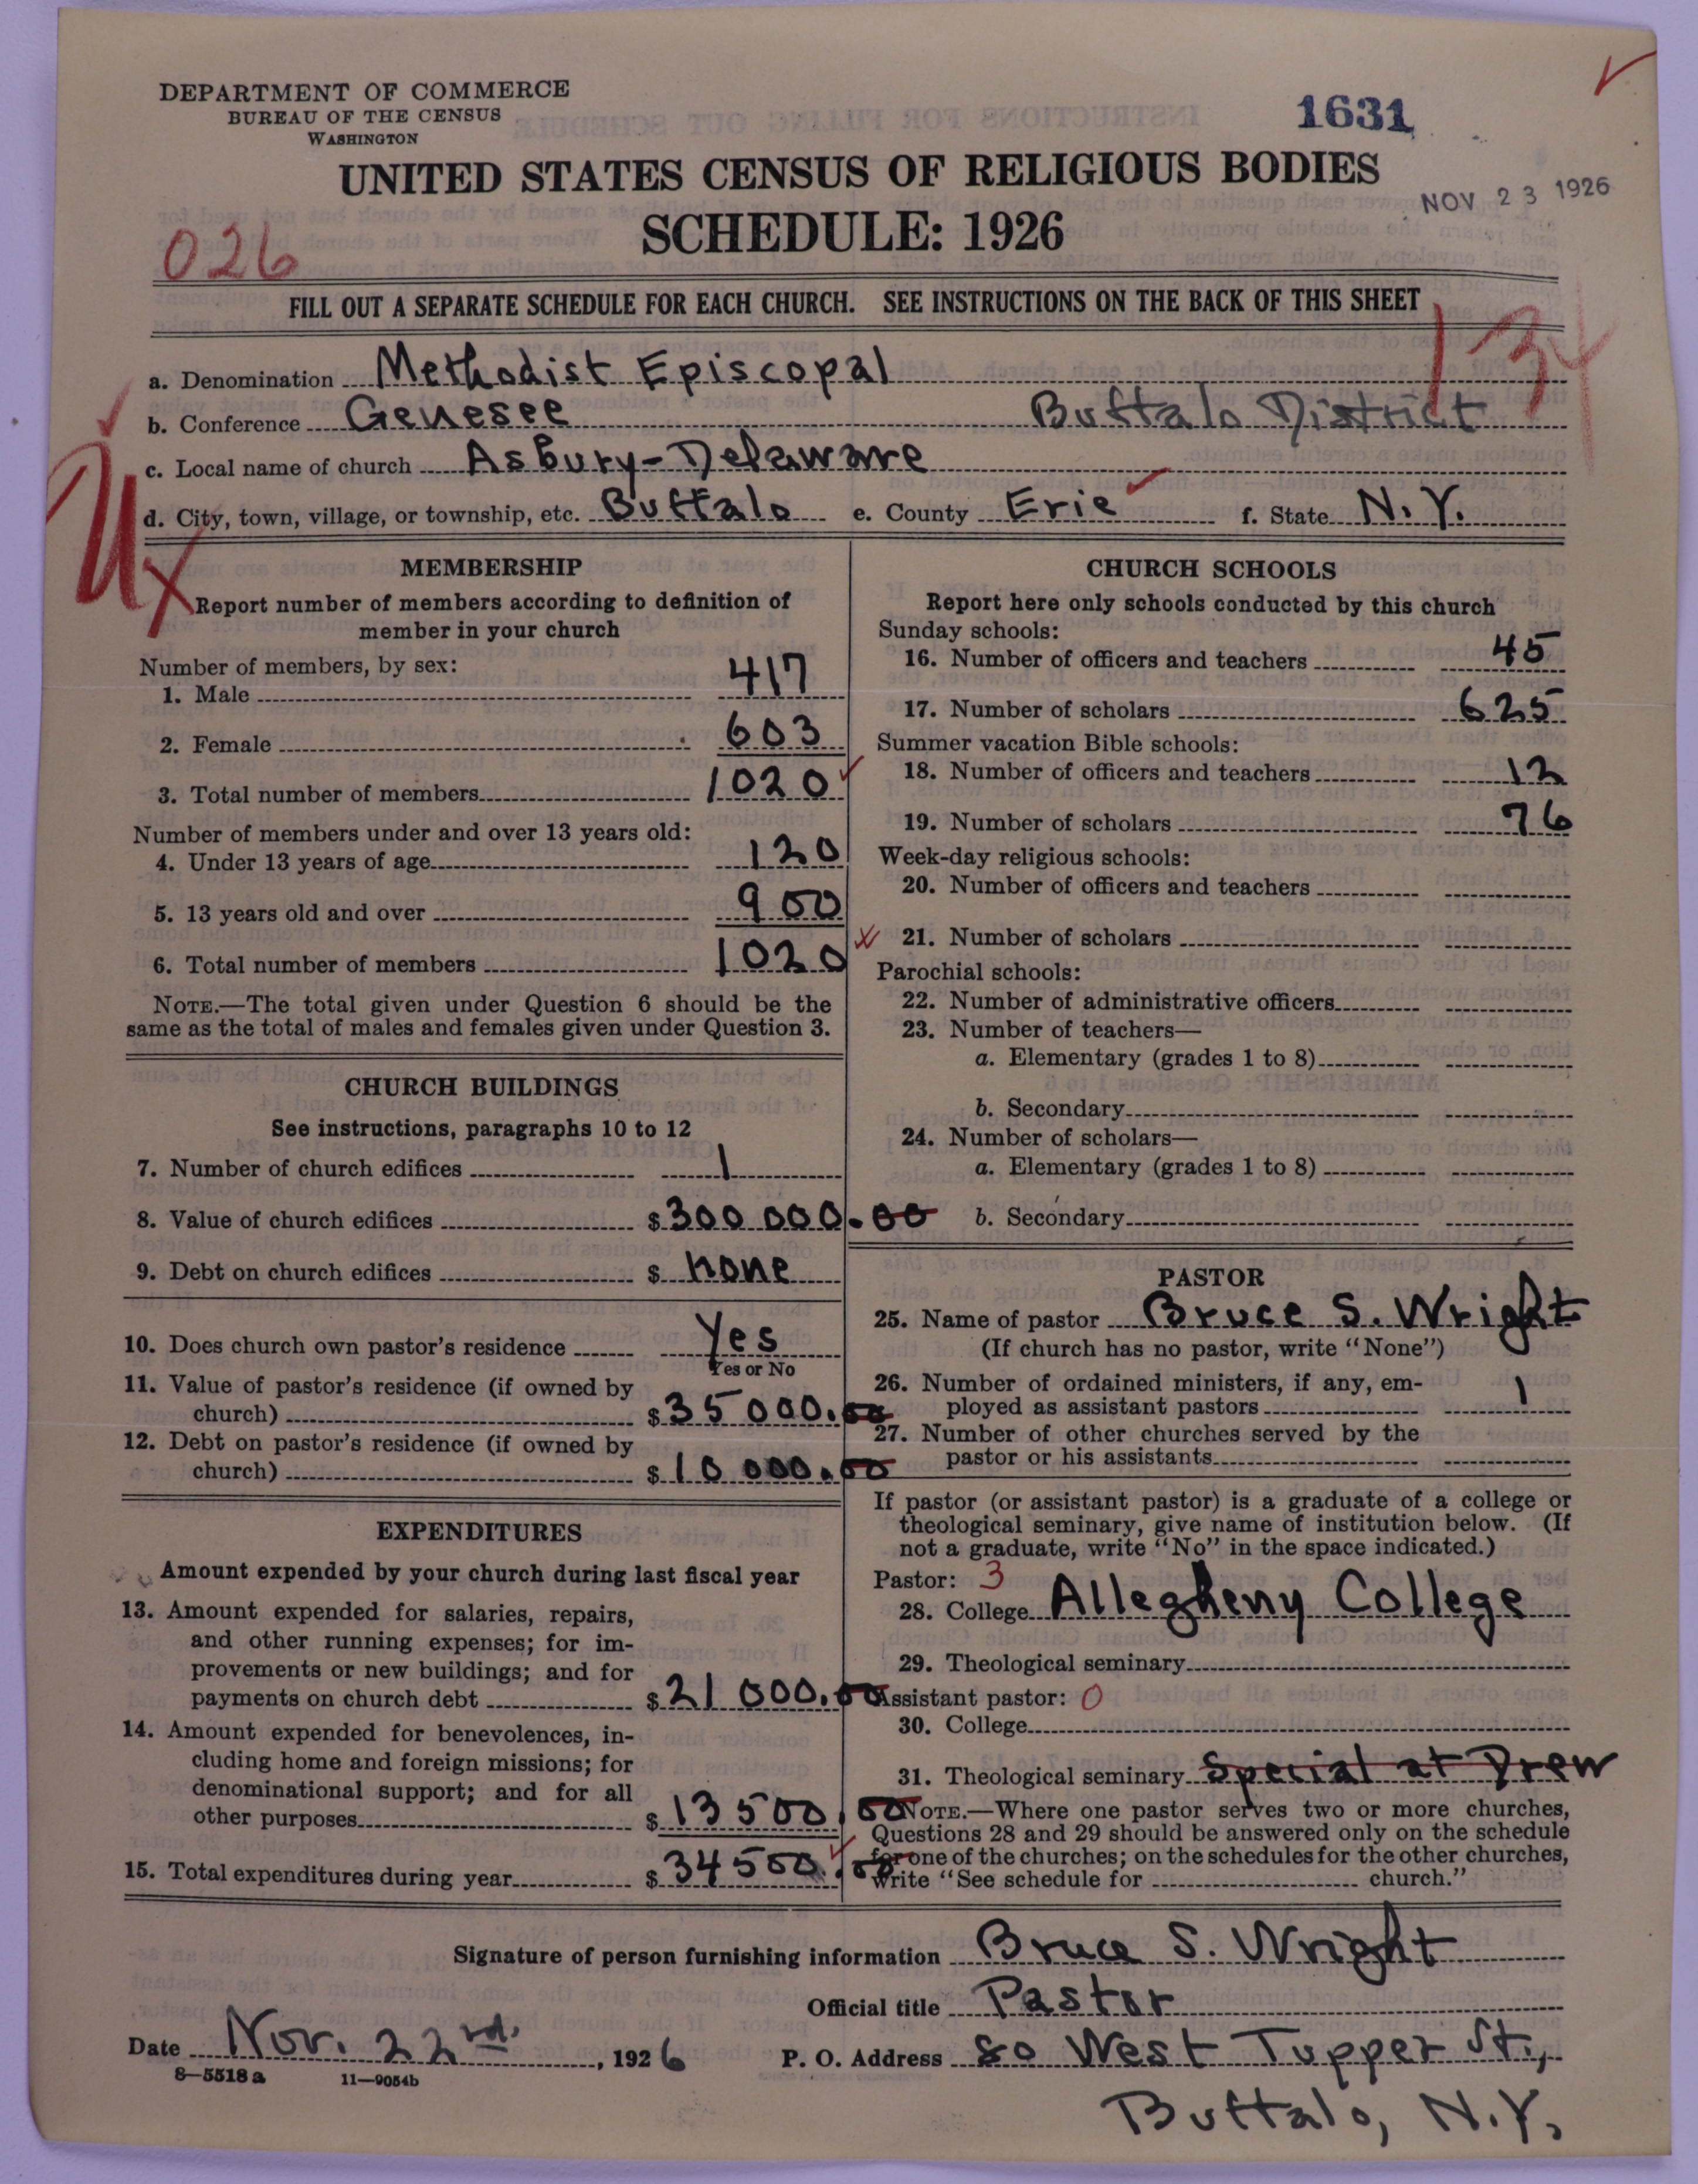 DEPARTMENT OF COMMERCE
BUREAU OF THE CENSUS
WASHINGTON
1631
UNITED STATES CENSUS OF RELIGIOUS BODIES
NOV 23 1926
SCHEDULE: 1926
026
FILL OUT A SEPARATE SCHEDULE FOR EACH CHURCH. SEE INSTRUCTIONS ON THE BACK OF THIS SHEET
134
a. Denomination Methodist Episcopal
b. Conference Genesee Buffalo District
c. Local name of church Asbury-Delaware
d. City, town, village, or township, etc. Buffalo e. County Erie f. State N.Y.
MEMBERSHIP
Report number of members according to definition of
member in your church
Number of members, by sex:
1. Male 417
2. Female 603
3. Total number of members 1020
Number of members under and over 13 years old:
4. Under 13 years of age 120
5. 13 years old and over 900
6. Total number of members 1020
NOTE.—The total given under Question 6 should be the
same as the total of males and females given under Question 3.
CHURCH BUILDINGS
See instructions, paragraphs 10 to 12
7. Number of church edifices 1
8. Value of church edifices $300 000.00
9. Debt on church edifices $ none
10. Does church own pastor's residence Yes
Yes or No
11. Value of pastor's residence (if owned by
church) $35 000.00
12. Debt on pastor's residence (if owned by
church) $10 000.00
EXPENDITURES
Amount expended by your church during last fiscal year
13. Amount expended for salaries, repairs,
and other running expenses; for im-
provements or new buildings; and for
payments on church debt $21 000.00
14. Amount expended for benevolences, in-
cluding home and foreign missions; for
denominational support; and for all
other purposes $13 500.00
15. Total expenditures during year $34 500.00
CHURCH SCHOOLS
Report here only schools conducted by this church
Sunday schools:
16. Number of officers and teachers 45
17. Number of scholars 625
Summer vacation Bible schools:
18. Number of officers and teachers 12
19. Number of scholars 76
Week-day religious schools:
20. Number of officers and teachers
21. Number of scholars
Parochial schools:
22. Number of administrative officers
23. Number of teachers—
a. Elementary (grades 1 to 8)
b. Secondary
24. Number of scholars—
a. Elementary (grades 1 to 8)
b. Secondary
PASTOR
25. Name of pastor Bruce S. Wright
(If church has no pastor, write "None")
26. Number of ordained ministers, if any, em-
ployed as assistant pastors 1
27. Number of other churches served by the
pastor or his assistants
If pastor (or assistant pastor) is a graduate of a college or
theological seminary, give name of institution below. (If
not a graduate, write "No" in the space indicated.)
Pastor: 3
28. College Allegheny College
29. Theological seminary
Assistant pastor: 0
30. College
31. Theological seminary Special at Drew
NOTE.—Where one pastor serves two or more churches,
Questions 28 and 29 should be answered only on the schedule
for one of the churches; on the schedules for the other churches,
write "See schedule for church."
Signature of person furnishing information Bruce S. Wright
Official title Pastor
Date Nov. 22nd. , 1926 P. O. Address 80 West Tupper St.,
8—5518 a 11—9054b
Buffalo, N.Y.